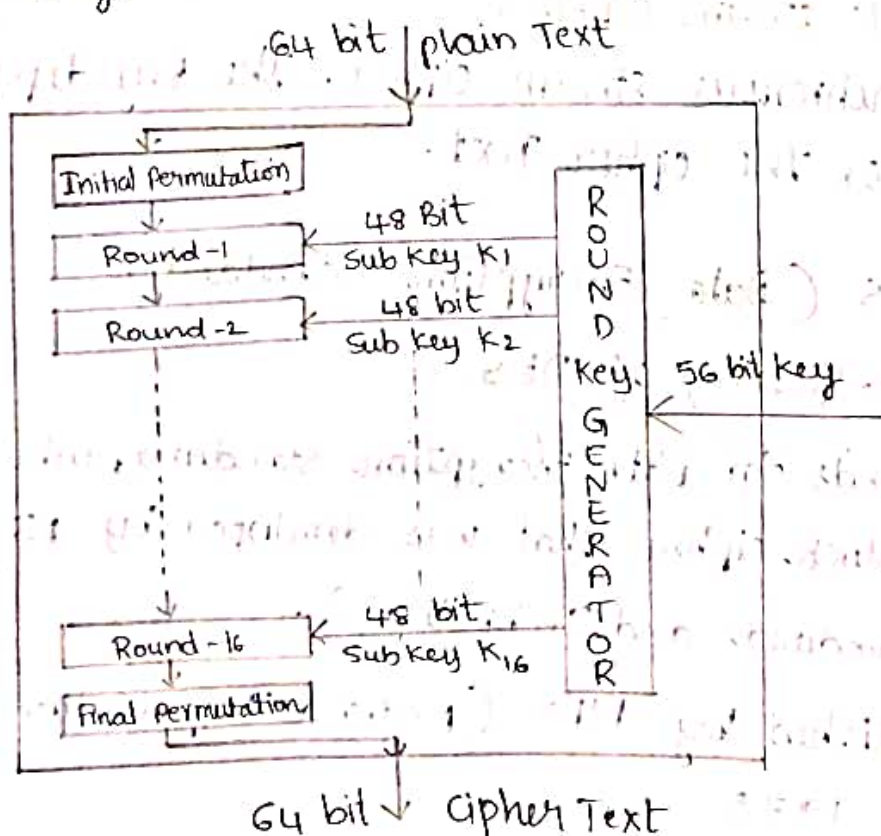 64 bit plain Text
Initial permutation
Round-1
48 Bit
Sub key K1
Round-2
48 bit
Sub key K2
ROUND key GENERATOR
56 bit key
Round-16
48 bit
Sub key K16
Final permutation
64 bit Cipher Text